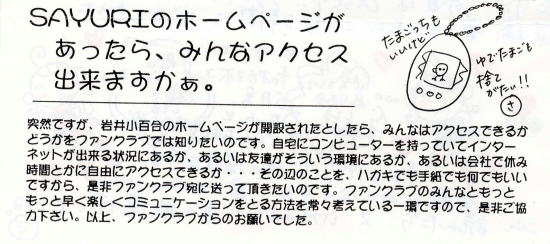 SAYURIのホームページが
あったら、みんなアクセス
出来ますかぁ。
たまごっちも
いいけど
ゆでたまごも
捨て
がたい!!
さ
突然ですが、岩井小百合のホームページが開設されたとしたら、みんなはアクセスできるか
どうかをファンクラブでは知りたいのです。自宅にコンピューターを持っていてインター
ネットが出来る状況にあるか、あるいは友達がそういう環境にあるか、あるいは会社で休み
時間とかに自由にアクセスできるか・・・その辺のことを、ハガキでも手紙でも何でもいい
ですから、是非ファンクラブ宛に送って頂きたいのです。ファンクラブのみんなともっと
もっと早く楽しくコミュニケーションをとる方法を常々考えている一環ですので、是非ご協
力下さい。以上、ファンクラブからのお願いでした。